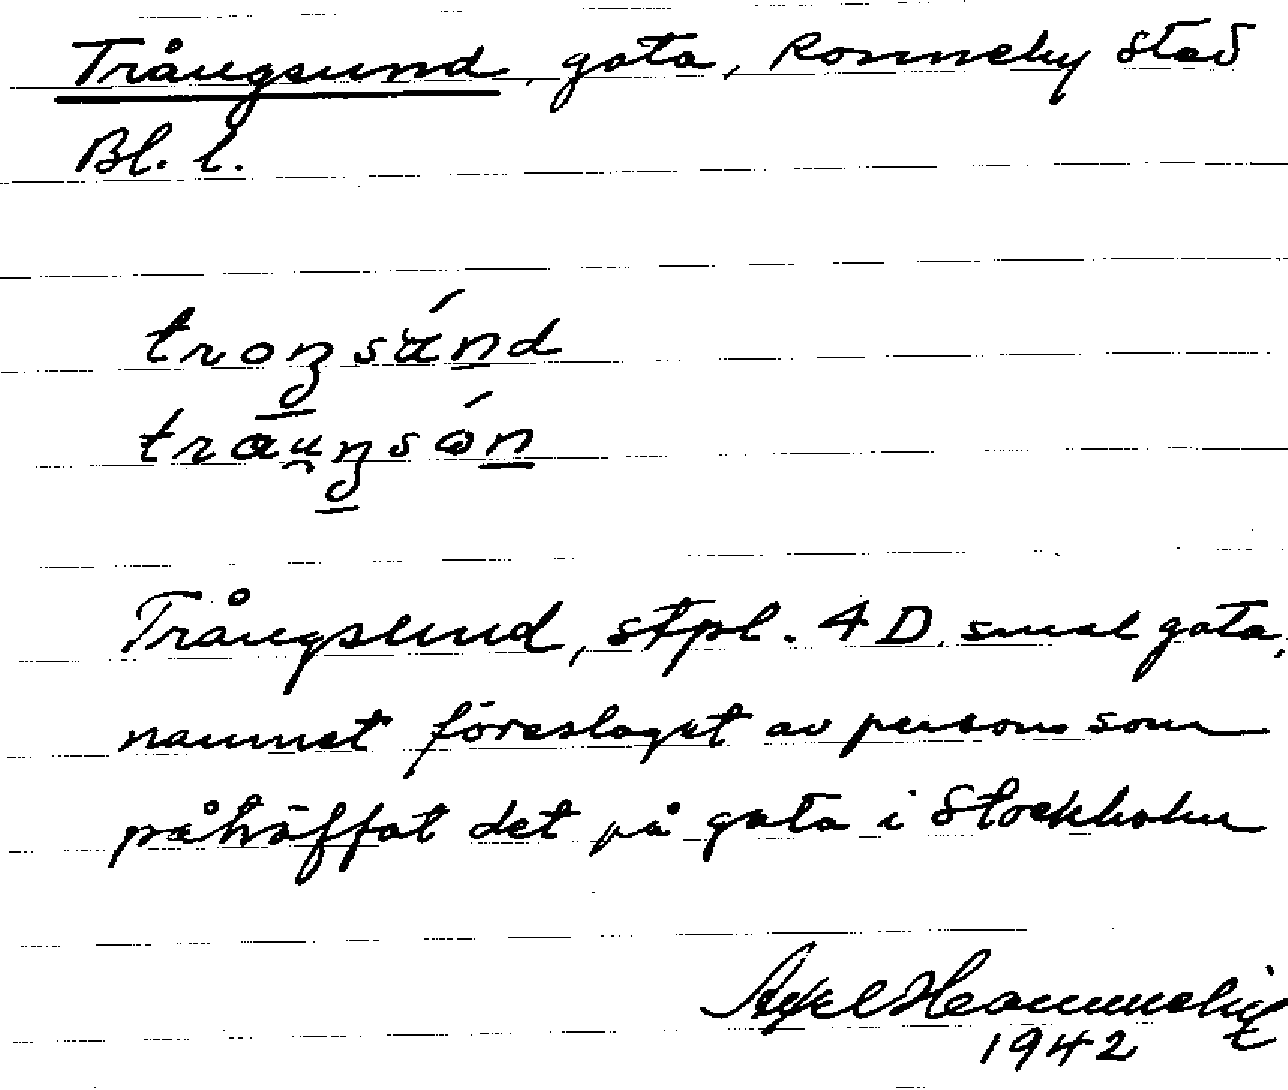 Trångsund, gata, Ronneby stad
Bl. l.
Trångsund, stpl. 4 D. smal gata,
namnet föreslaget av person som
påträffat det på gata i Stockholm
Axel
1942